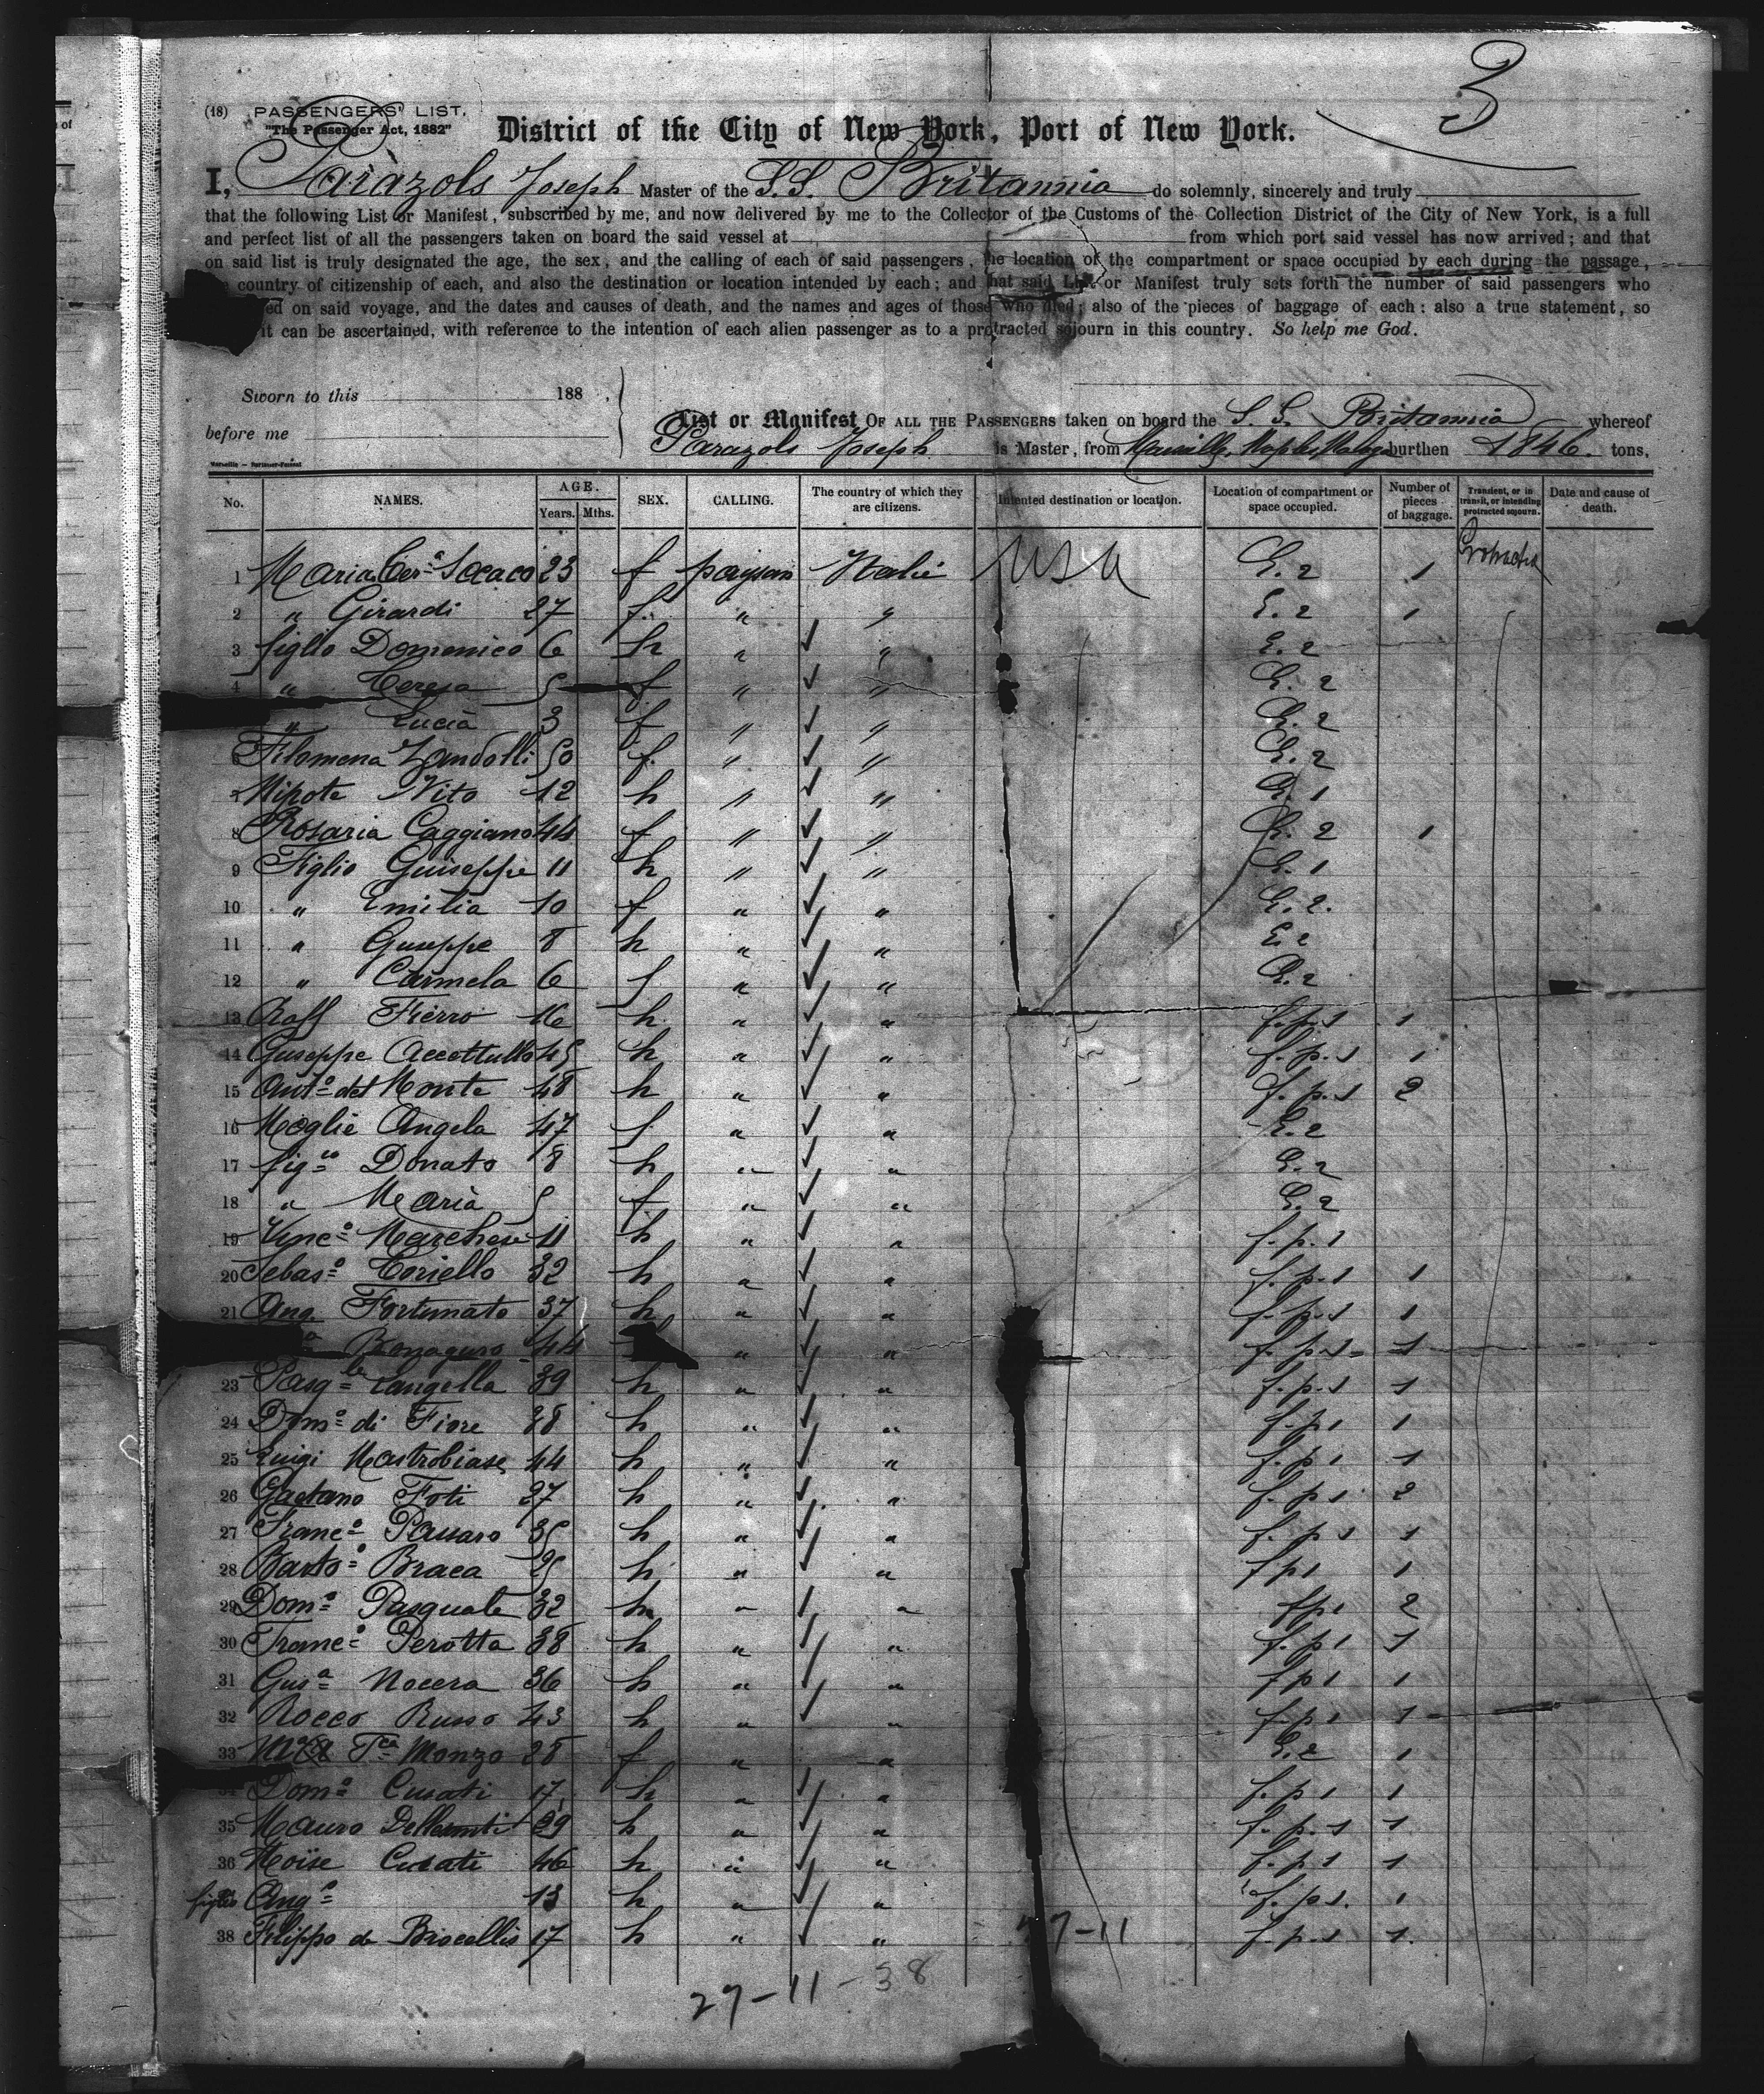 3
(18) PASSENGERS' LIST.
"The Passenger Act, 1882"
District of the City of New York, Port of New York.
I, Parazols Joseph Master of the S.S. Britannia do solemnly, sincerely and truly
that the following List or Manifest, subscribed by me, and now delivered by me to the Collector of the Customs of the Collection District of the City of New York, is a full
and perfect list of all the passengers taken on board the said vessel at from which port said vessel has now arrived; and that
on said list is truly designated the age, the sex, and the calling of each of said passengers, the location of the compartment or space occupied by each during the passage,
country of citizenship of each, and also the destination or location intended by each; and that said List or Manifest truly sets forth the number of said passengers who
ed on said voyage, and the dates and causes of death, and the names and ages of those who died; also of the pieces of baggage of each: also a true statement, so
it can be ascertained, with reference to the intention of each alien passenger as to a protracted sojourn in this country. So help me God.
Sworn to this 188 .
before me
List or Manifest OF ALL THE PASSENGERS taken on board the S. S. Britannia whereof
Parazols Joseph is Master, from Marseille, Naples, Malaga burthen 1846. tons.
No. NAMES. AGE. Years. Mths. SEX. CALLING. The country of which they are citizens. Intented destination or location. Location of compartment or space occupied. Number of pieces of baggage. Transient, or in transit, or intending protracted sojourn. Date and cause of death.
1 Maria Cer.a Socaco 23 f paysan Italie USA E. 2 1 Protracted
2 " Girardi 27 f. " " E. 2 1
3 figlio Domenico 6 h " " E. 2
4 " Teresa 5 f " " E. 2
" Lucia 3 f " " E. 2
6 Filomena Zandolli 50 f. " " E. 2
7 Nipote Vito 12 h " " E. 1
8 Rosaria Caggiano 44 f " " E. 2 1
9 Figlio Guiseppe 11 h " " E. 1
10 " Emilia 10 f " " E. 2.
11 " Guseppe 8 h " " E. 2
12 " Carmela 6 f " " E. 2
13 Raff Fierro 16 h. " " f. p. 1 1
14 Guseppe Accettullo 45 h " " f. p. 1 1
15 Ant.o del Monte 48 h " " f. p. 1 2
16 Moglie Angela 47 f " " E. 2
17 fig.o Donato 8 h " " E. 2
18 " Maria 5 f " " E. 2
19 Vinc.o Marchese 11 h " " f. p. 1
20 Sebas.o Coriello 32 h " " f. p. 1 1
21 Ang. Fortunato 37 h " " f. p. 1 1
Bonaguro 44 " " f. p. 1 1
23 Pasq.le Langella 39 h " " f. p. 1 1
24 Dom.o di Fiore 28 h " " f. p. 1 1
25 Luigi Mastrobiase 44 h " " f. p. 1 1
26 Gaetano Foti 27 h " " f. p. 1 2
27 Franc.o Passaro 35 h " " f. p. 1 1
28 Barto.o Braca 25 h " " f p 1 1
29 Dom.o Pasquale 32 h " " f p 1 2
30 Franc.o Perotta 38 h " " f. p 1 1
31 Gus.a Nocera 36 h " " f p 1 1
32 Rocco Russo 43 h " " f. p 1 1
33 T.ca Monzo 28 f " " E. 2 1
34 Dom.o Cusati 17 h " " f. p 1 1
35 Mauro 29 h " " f. p. 1 1
36 Moise Cusati 46 h " " f. p 1 1
figlio Ang.o 13 h " " f. p. 1. 1
38 Filippo de Biocellis 17 h " " f. p. 1 1.
27-11
27-11-38